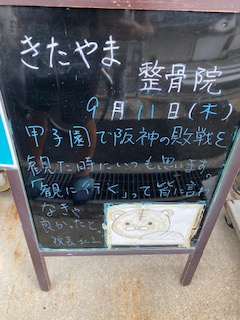 きたやま
整骨院
9月11日(木)
甲子園で阪神の敗戦を
観た時にいつも思います
「観に行く」って皆に言わ
なきゃ
良かったと
院長 北山